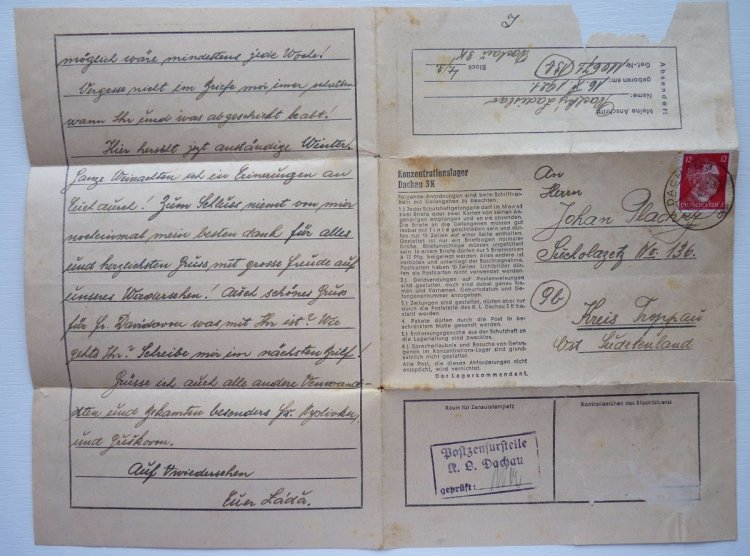 möglich wäre mindestens jede Woche!
Vergesse nicht im Briefe mir imer schreiben
wann Ihr und was abgeschickt habt!
Hier herselt jezt anständige Winter.
Ganze Weinachten ich in Erinerungen an
Eich durch! Zum Schluss niemt von mir
nocheinmal mein besten dank für alles
und herzlichsten Gruss mit grosse Freude auf
unseres Wiedersehen! Auch schönes Gruss
für Fr. Davidovou was mit Ihr ist? Wie
gehts Ihr? Schreibe mir im nächsten Brief!
Grüsse ich auch alle andere Verwand-
dten und Bekamten besonders Fr.
und
Auf Wiedersehen
Euer Láďa.
Absender:
Meine Anschrift
Name: Ladislav
geboren am: 1921.
Gef.-Nr.
Block
Dachau 3K
Konzentrationslager
Dachau 3K
Folgende Anordnungen sind beim Schriftver-
kehr mit Gefangenen zu beachten:
1.) Jeder Schutzhaftgefangene darf im Monat
zwei Briefe oder zwei Karten von seinen An-
gehörigen empfangen und an sie absenden.
Die Briefe an die Gefangenen müssen gut
lesbar mit Tinte geschrieben sein und dür-
fen nur 15 Zeilen auf einer Seite enthalten.
Gestattet ist nur ein Briefbogen normaler
Größe. Briefumschläge müssen ungefüttert
sein. In einem Briefe dürfen nur 5 Briefmarken
à 12 Pfg. beigelegt werden. Alles andere ist
verboten und unterliegt der Beschlagnahme.
Postkarten haben 10 Zeilen. Lichtbilder dür-
fen als Postkarten nicht verwendet werden.
2.) Geldsendungen auf Postanweisungen
sind gestattet, doch sind dabei genau Na-
men und Vornamen, Geburtsdatum und Ge-
fangenennummer anzugeben.
3.) Zeitungen sind gestattet, dürfen aber nur
durch die Poststelle des K. L. Dachau 3K be-
stellt werden.
4.) Pakete dürfen durch die Post in be-
schränktem Maße gesandt werden.
5.) Entlassungsgesuche aus der Schutzhaft an
die Lagerleitung sind zwecklos.
6.) Sprecherlaubnis und Besuche von Gefan-
genen im Konzentrations-Lager sind grund-
sätzlich nicht gestattet.
Alle Post, die diesen Anforderungen nicht
entspricht, wird vernichtet.
Der Lagerkommandant.
An
Herrn
Johan
No. 136.
9b
Kreis Troppau
Ost Sudetenland
12 12
Raum für Zensurstempel:
Kontrollzeichen des Blockführers:
Postzensurstelle
K. L. Dachau
geprüft: